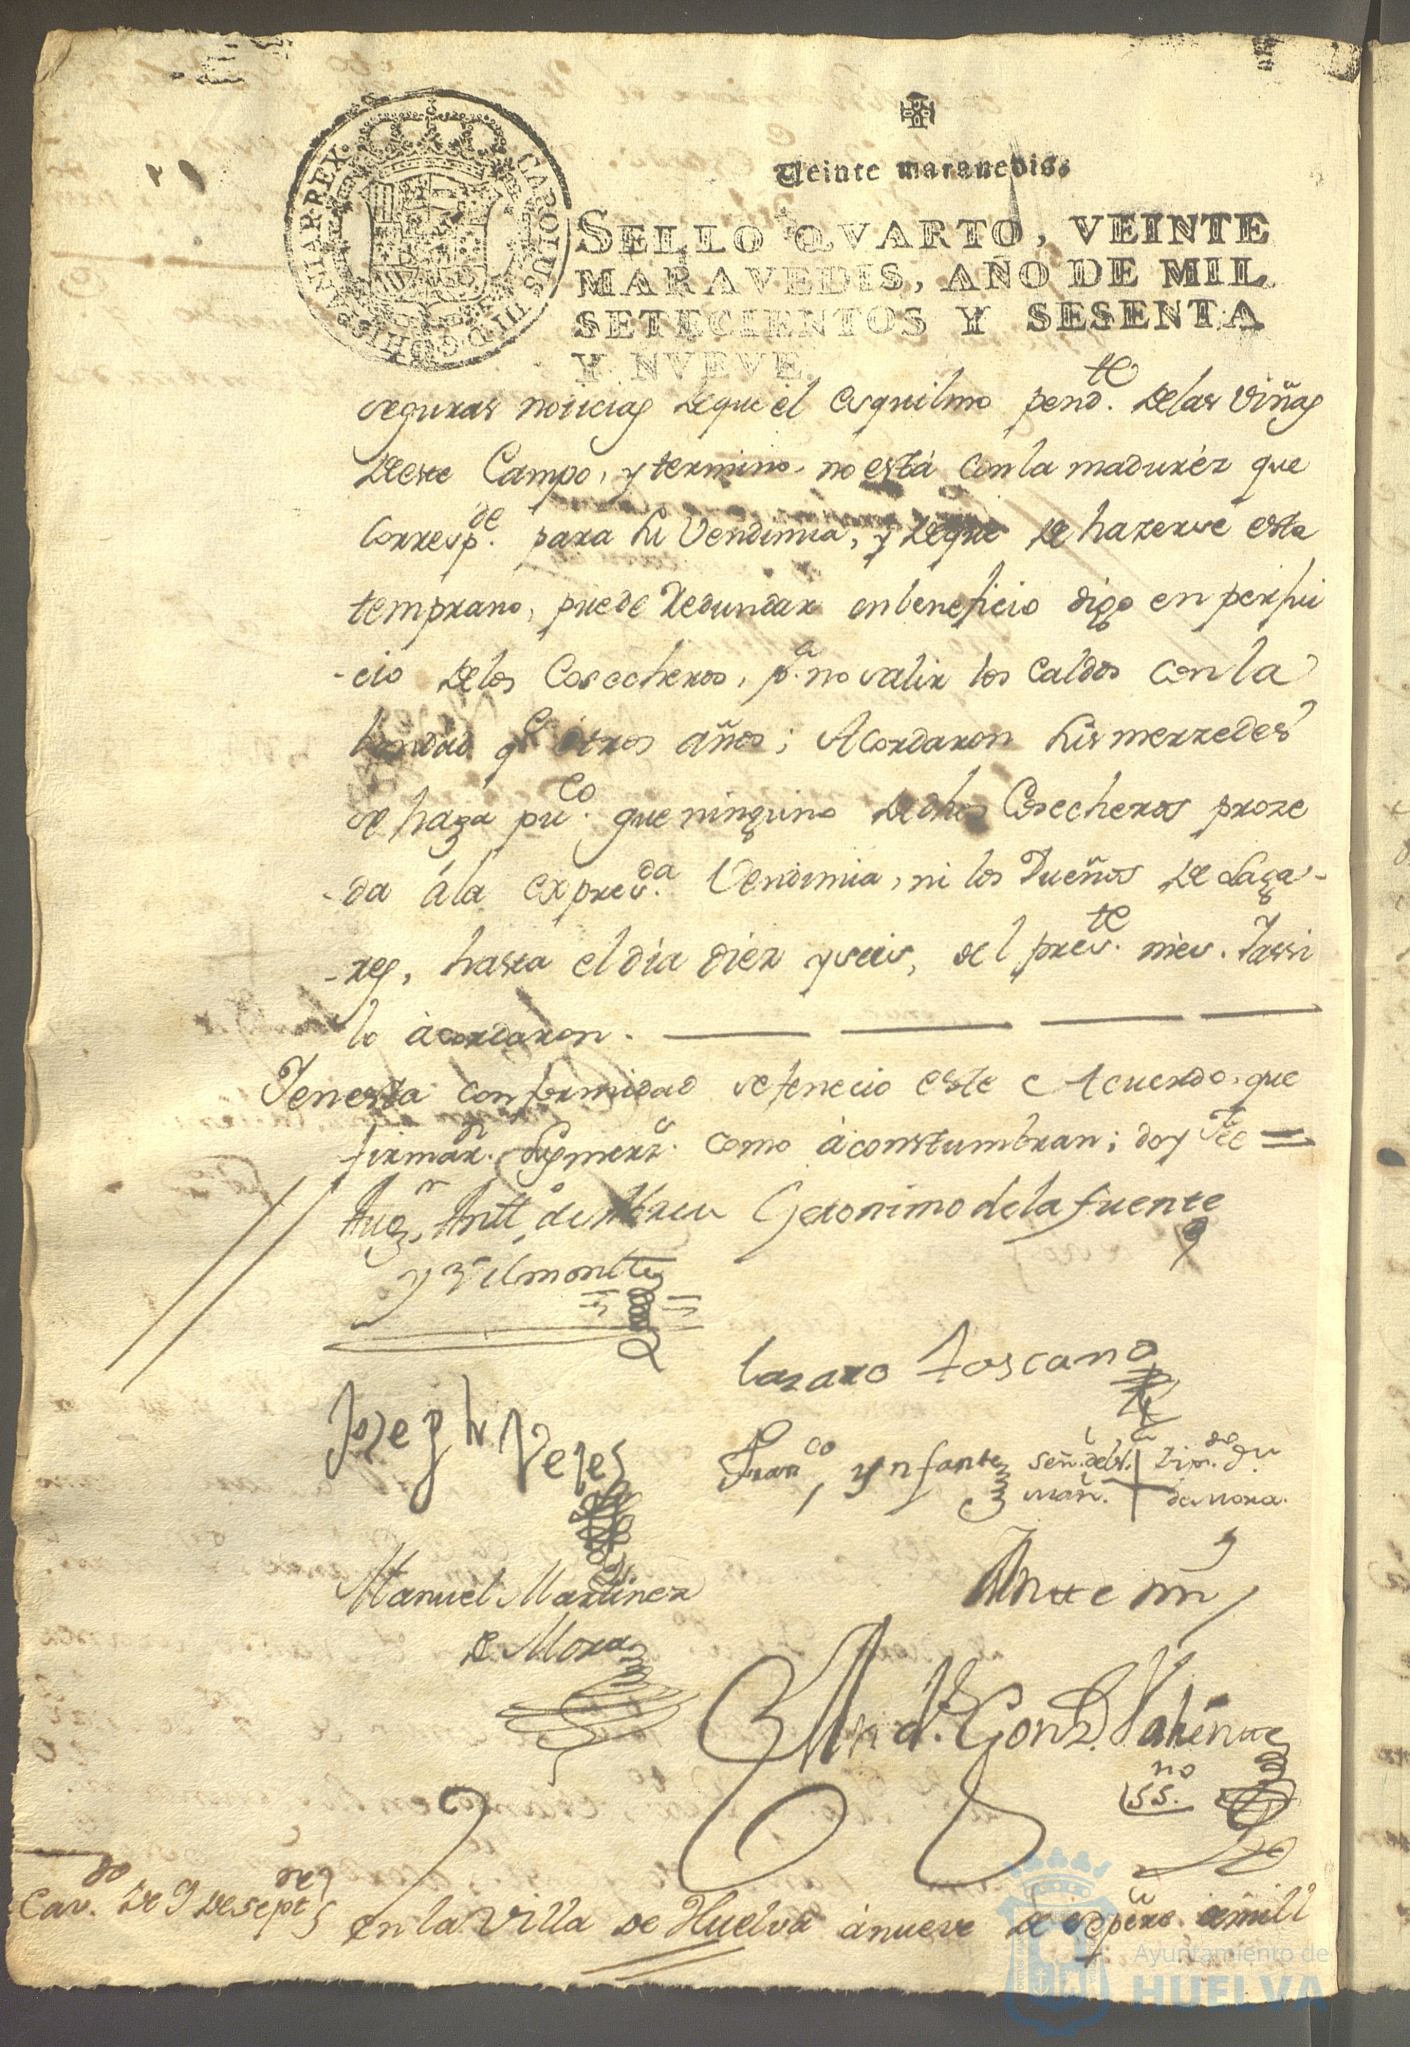 CAROLUS III D.G. HISPANIAR. REX.
Veinte maravedis.
SELLO QVARTO, VEINTE
MARAVEDIS, AÑO DE MIL
SETECIENTOS Y SESENTA
Y NVEVE.
seguras noticias de que el esquilmo pend.te de las viñas
de este Campo, y termino no está con la maduréz que
corresp.de para su Vendimia, y de que de hazerse esta
temprano, puede redundar en beneficio digo en perjui
-cio de los Cosecheros, p.r no salir los caldos con la
bondad q.e otros años; Acordaron sus merzedes
se haga pu.co que ninguno de dhos Cosecheros proze
-da á la expres.da Vendimia, ni los Dueños de Laga-
-res, hasta el dia diez y seis, del pres.te mes. Y assi
lo acordaron.
Y en esta conformidad se fenecio este Acuerdo, que
firmar.n sus merz.s como acostumbran; doy fee =
Aug.n Antt.o de Abreu
y Vilmontte
Geronimo de la fuente
Lazaro toscano
Joseph Veles
Fran.co ynfante
señ.l de
de Mora.
Manuel Martinez
de Mora
Ante mi
And.s Gonz.z Valiente
ss.no
Cav.do de 9 de sept.re
en la Villa de Huelva á nueve de sep.re de mill
Ayuntamiento de
HUELVA